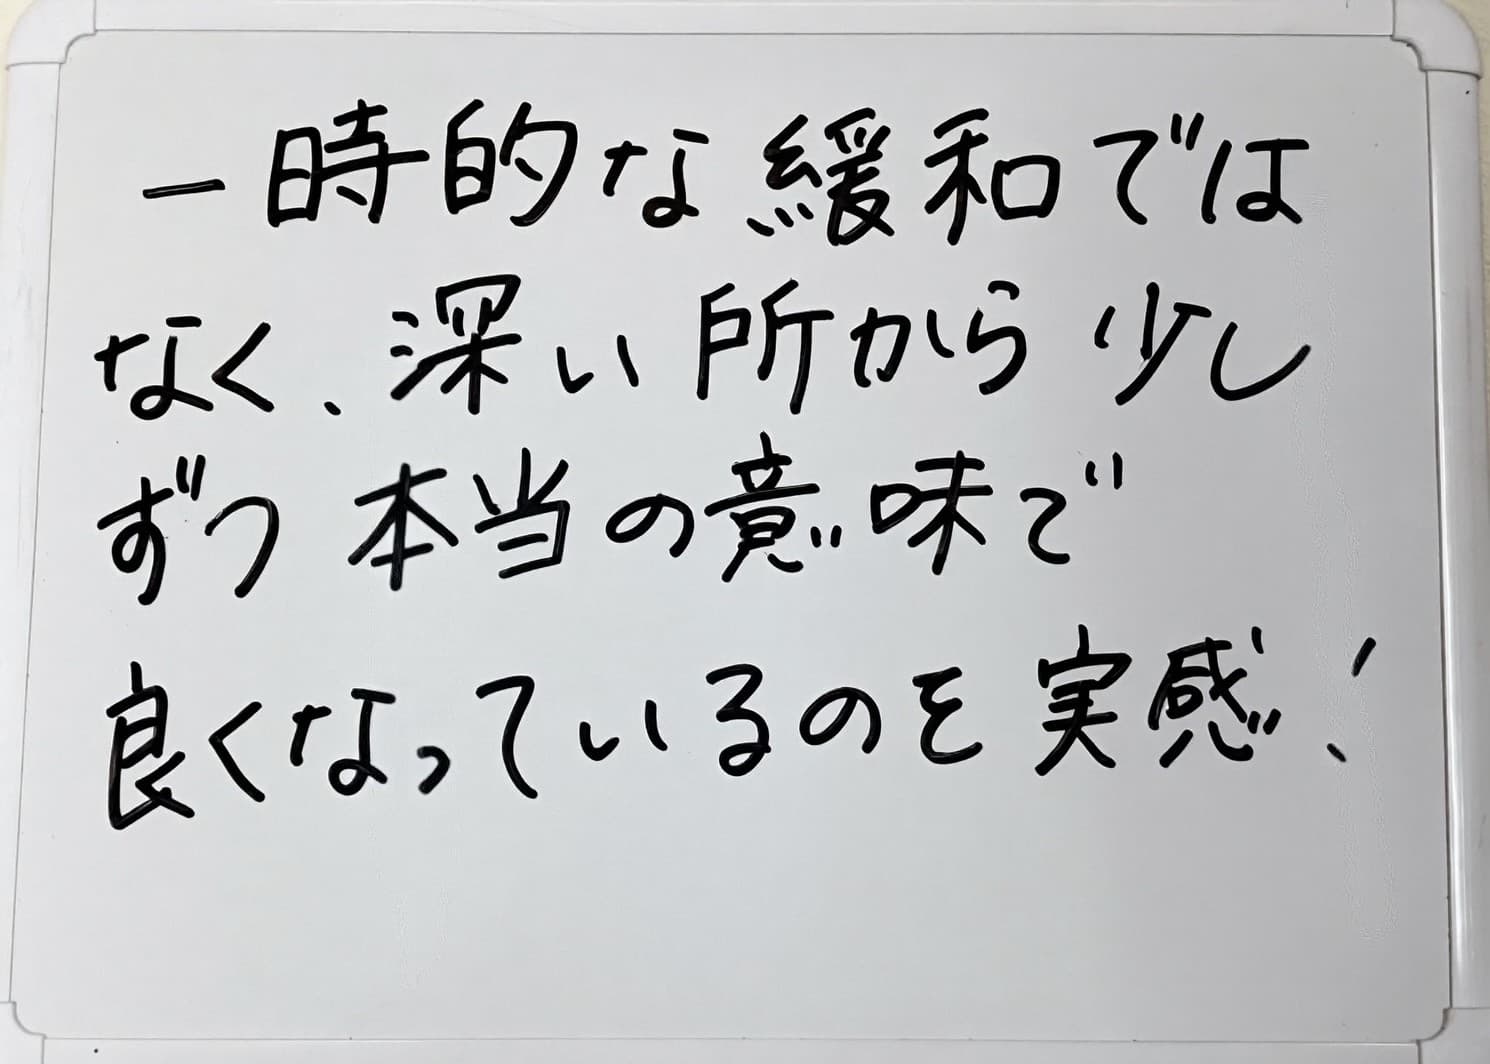 一時的な緩和では
なく、深い所から少し
ずつ本当の意味で
良くなっているのを実感!